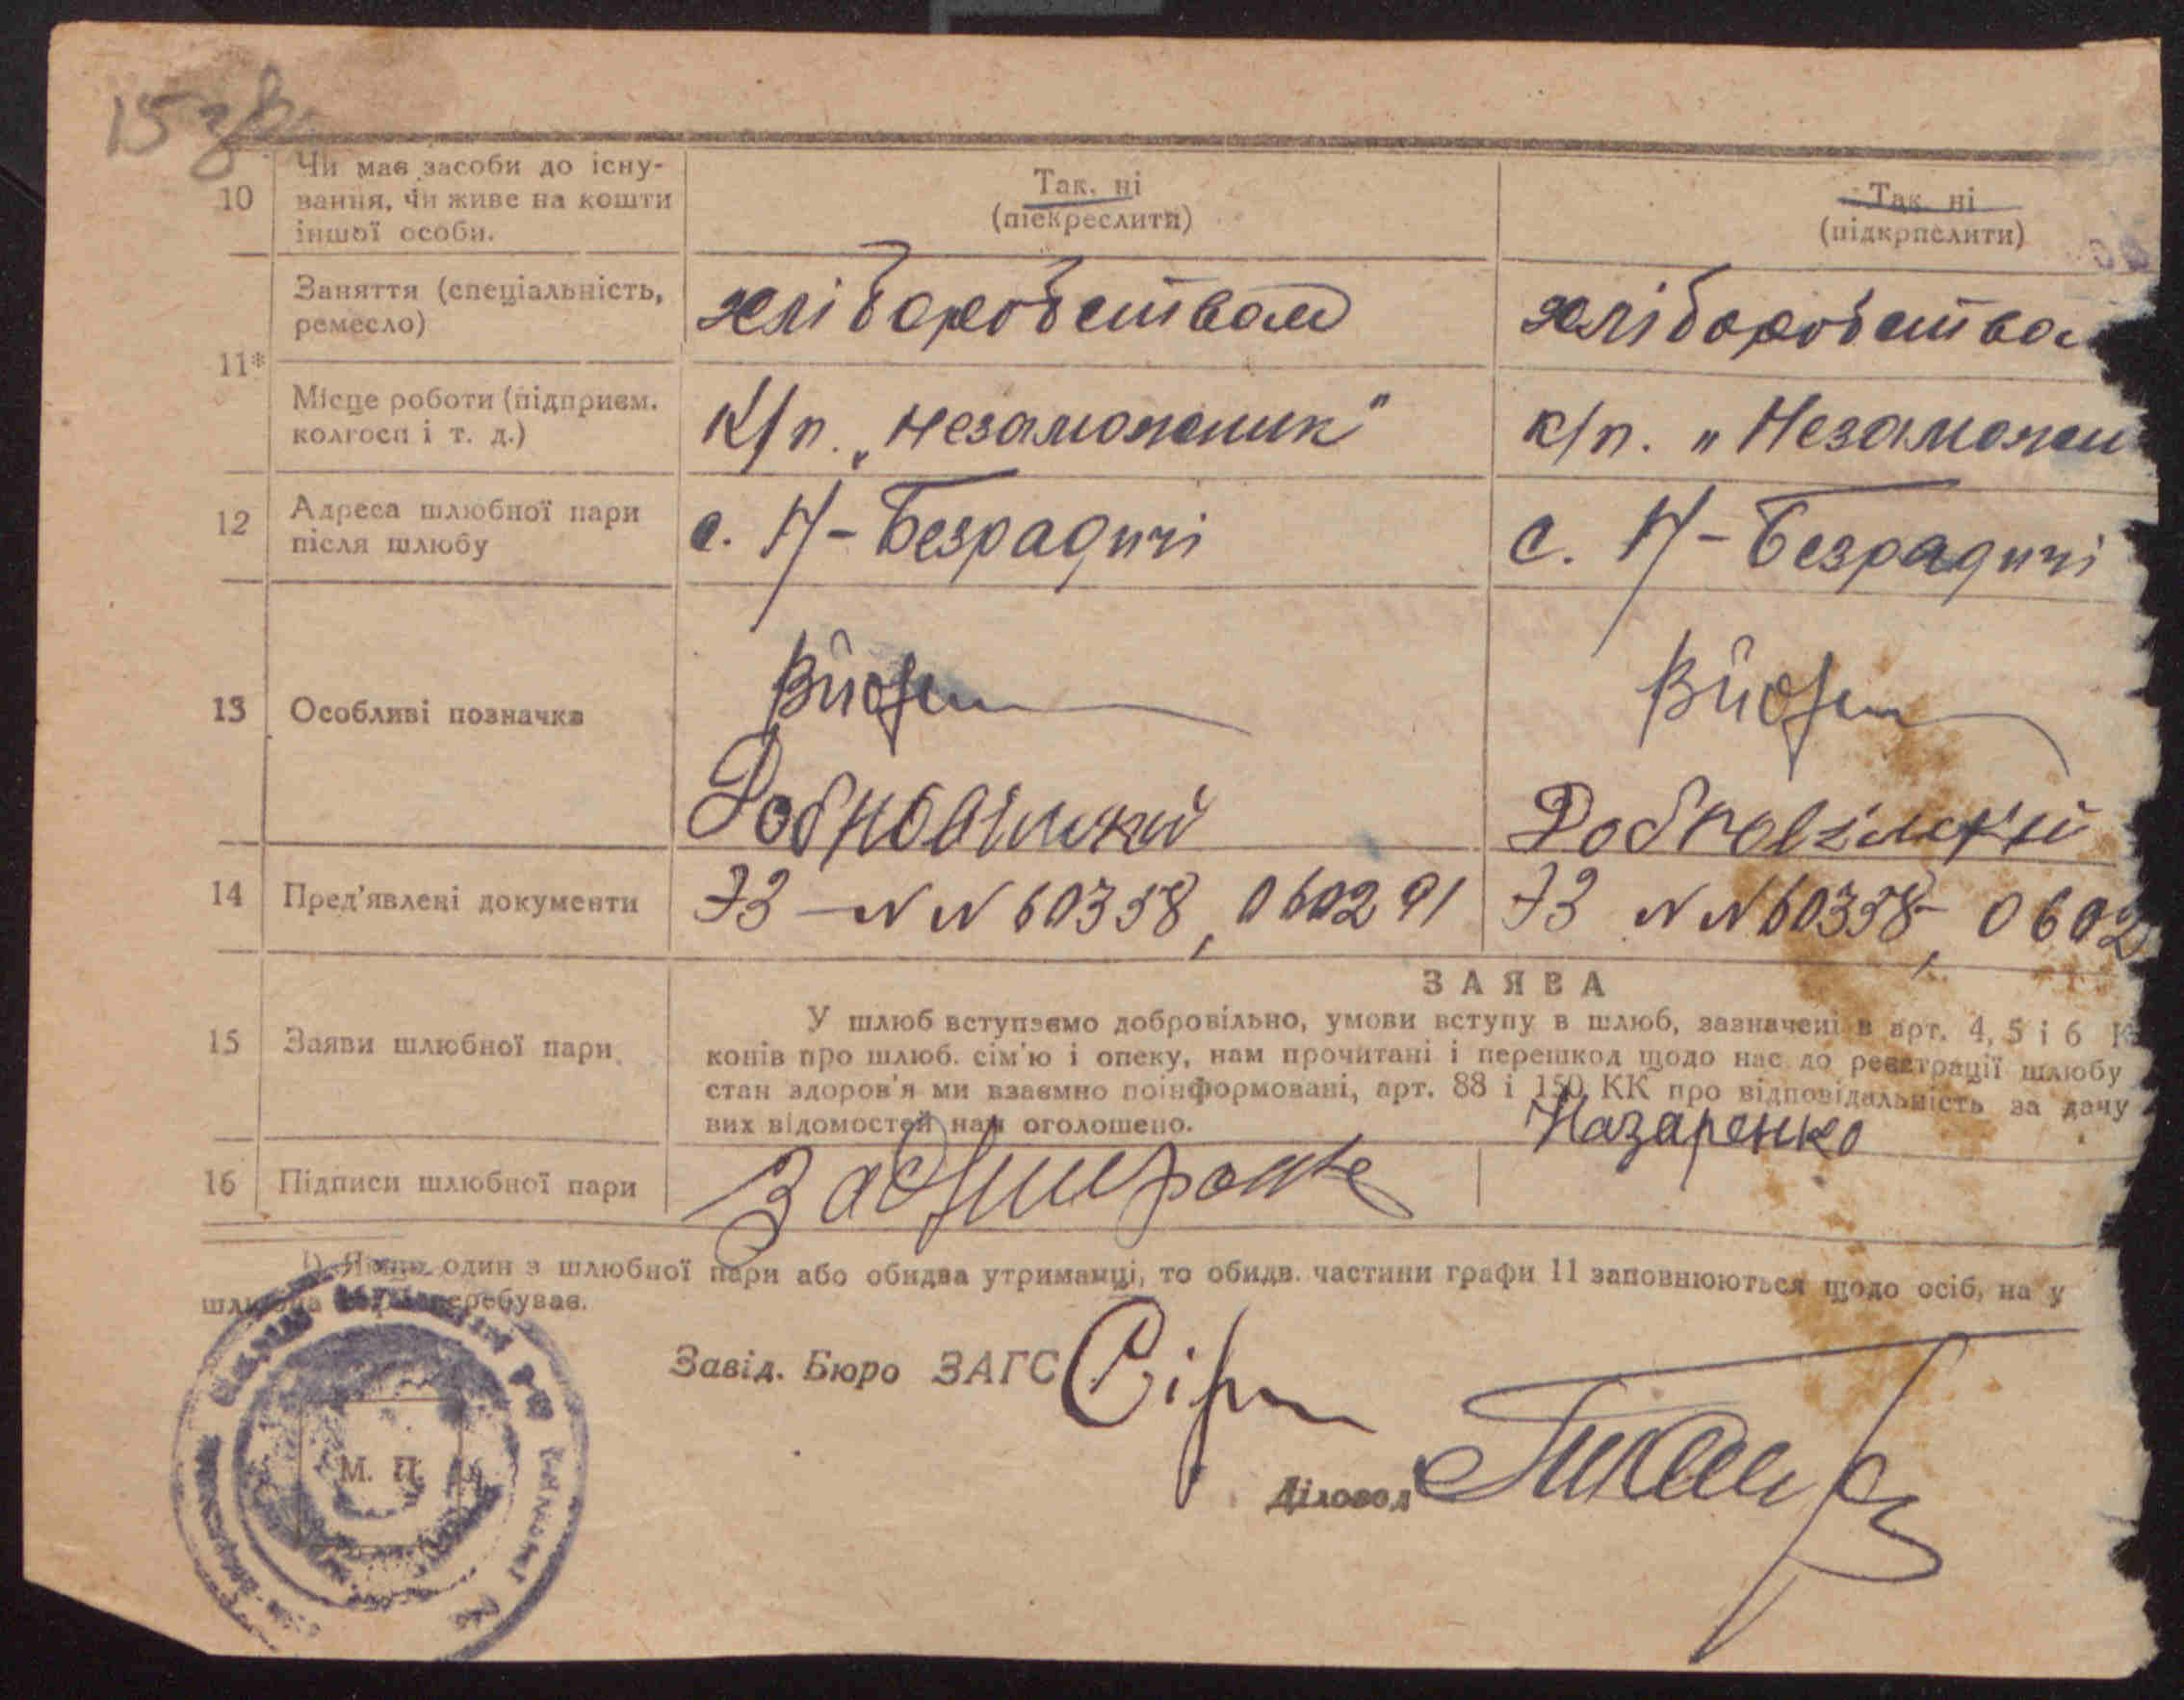 15 зв.
10 Чи має засоби до існу-
вання, чи живе на кошти
іншої особи.
Так, ні
(піекреслити)
Так, ні
(підкрпслити)
11*
Заняття (спеціальність,
ремесло)
хліборобством
хліборобством
Місце роботи (підприєм.
колгосп і т. д.)
К/п. „Незаможник"
к/п. „Незаможни
12 Адреса шлюбної пари
після шлюбу
с. Н-Безрадичі
с. Н-Безрадичі
13 Особливі позначки
14 Пред'явлені документи
ЗЗ — N N 60358, 060291
ЗЗ N N 60358, 0602
15 Заяви шлюбної пари
ЗАЯВА
У шлюб вступаємо добровільно, умови вступу в шлюб, зазначені в арт. 4, 5 і 6
конів про шлюб. сім'ю і опеку, нам прочитані і перешкод щодо нас до реєстрації шлюбу
стан здоров'я ми взаємно поінформовані, арт. 88 і 150 КК про відповідальність за дачу
вих відомостей нам оголошено.
16 Підписи шлюбної пари
Назаренко
1) Якщо один з шлюбної пари або обидва утриманці, то обидв. частини графи 11 заповнюються щодо осіб, на у
перебуває.
М. П.
Завід. Бюро ЗАГС
Діловод